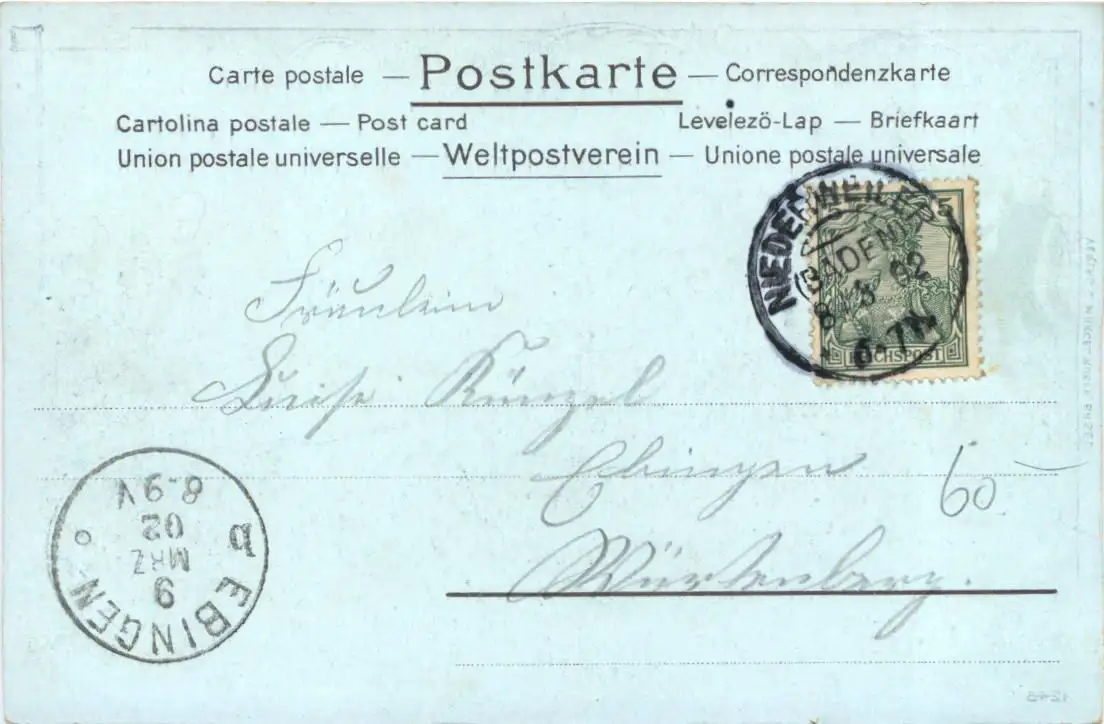 Carte postale — Postkarte — Correspondenzkarte
Cartolina postale — Post card Levelező-Lap — Briefkaart
Union postale universelle — Weltpostverein — Unione postale universale
NIEDERWEILER
(BADEN)
8 3 02
6-7N.
5
REICHSPOST
Fräulein
Luise Künzel
Ebingen
60 —
Würtenberg.
EBINGEN
b
9
MRZ
02
8-9V